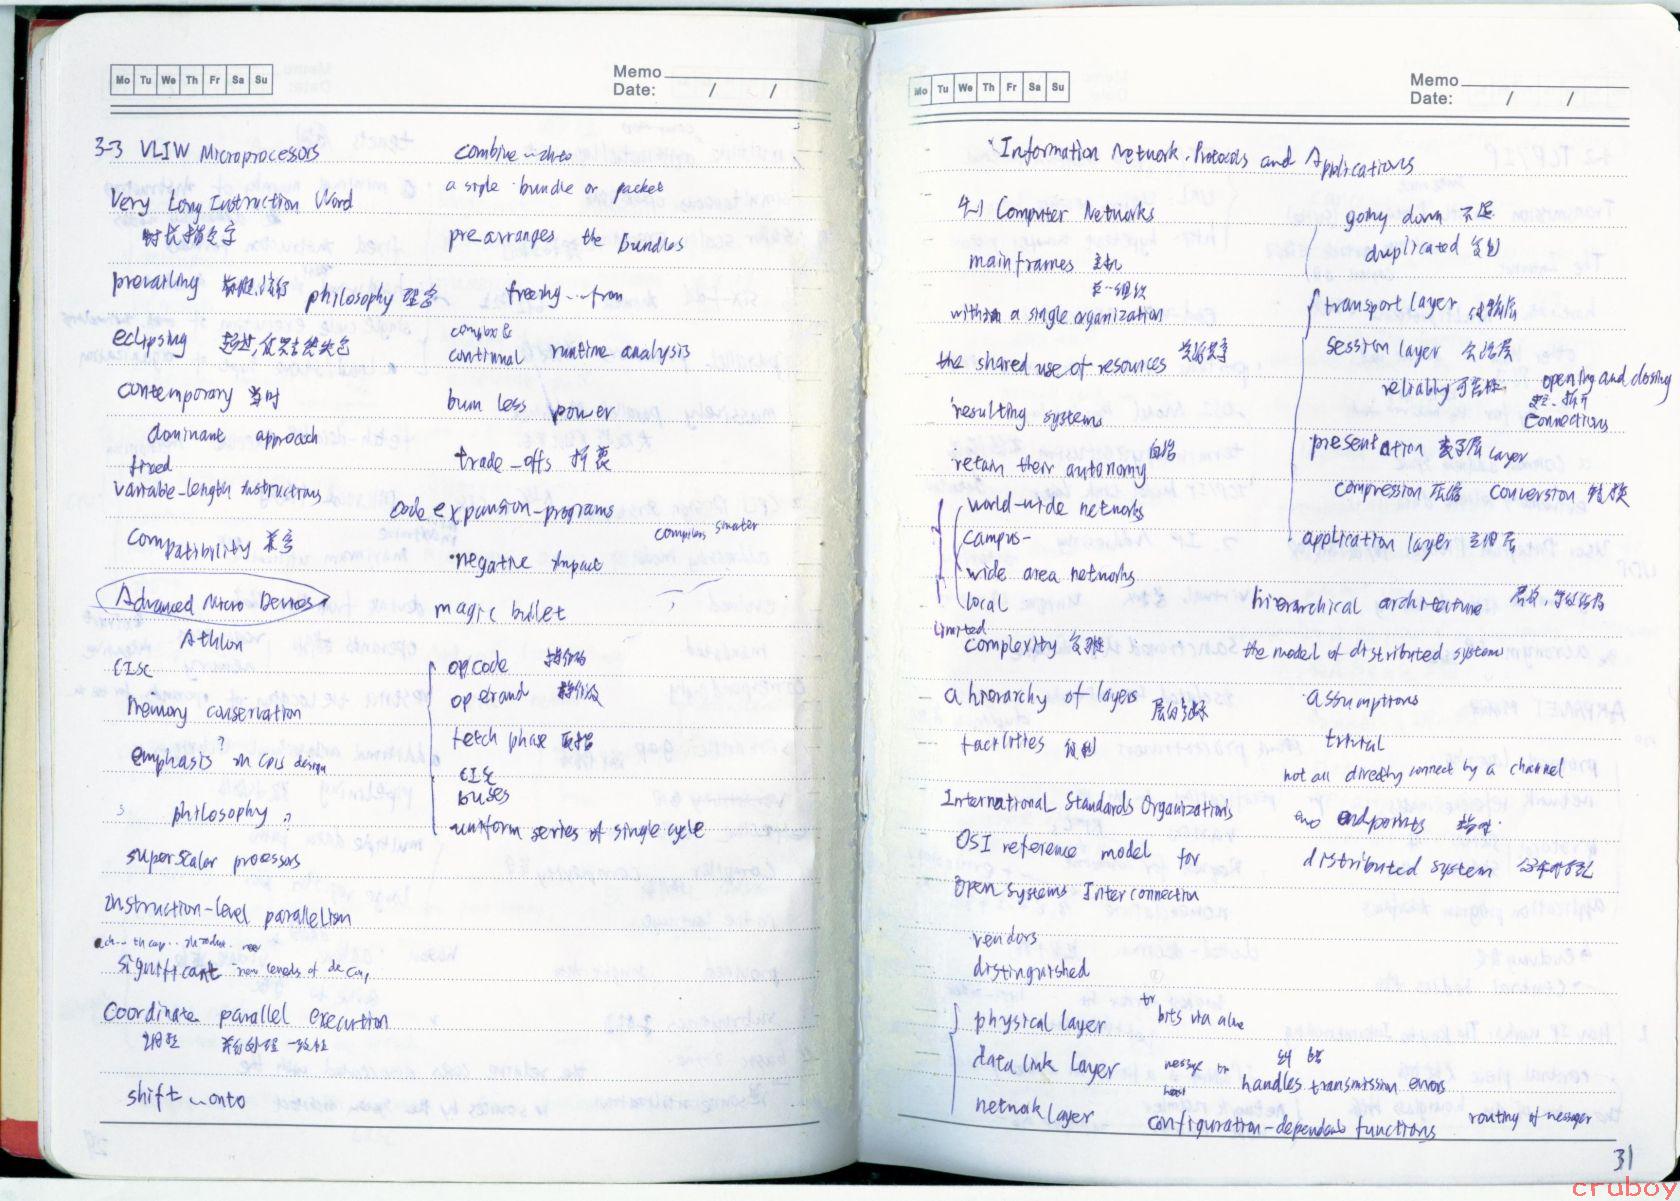 Mo Tu We Th Fr Sa Su
Memo
Date: / /
3-3 VLIW Microprocessors
Very Long Instruction Word
prevailing
philosophy 理念
eclipsing
contemporary 当时
dominant approach
fixed
variable-length instructions
Compatibility 兼容
Advanced Micro Devices
Athlon
CISC
Memory conservation
emphasis in CPUs design
philosophy
superscalar processors
instruction-level parallelism
significant new levels of
Coordinate parallel execution
shift onto
combine into
a single bundle or packet
prearranges the bundles
freeing...from
complex &
continual runtime analysis
burn less power
trade-offs 折衷
code expansion-programs
compilers smarter
negative impact
magic bullet
opcode 操作码
operand 操作数
fetch phase 取指
CISC
buses
uniform series of single cycle
Mo Tu We Th Fr Sa Su
Memo
Date: / /
Information Network. Protocols and Applications
4-1 Computer Networks
mainframes 主机
单一组织
within a single organization
the shared use of resources 资源共享
resulting systems
retain their autonomy 自治
world-wide networks
campus-
wide area networks
local
limited
complexity 复杂
a hierarchy of layers
facilities
International Standards Organizations
OSI reference model for
Open Systems Interconnection
vendors
distinguished
physical layer bits via a line
data link Layer
handles transmission errors
network layer configuration-dependent functions routing of messages
going down
duplicated 复制
transport layer 传输层
session layer 会话层
reliably 可靠性 opening and closing
connections
presentation 表示层 layer
compression 压缩 conversion 转换
application layer 应用层
hierarchical architecture
the model of distributed system
assumptions
trivial
not all directly connect by a channel
two endpoints
distributed system
31
cruboy